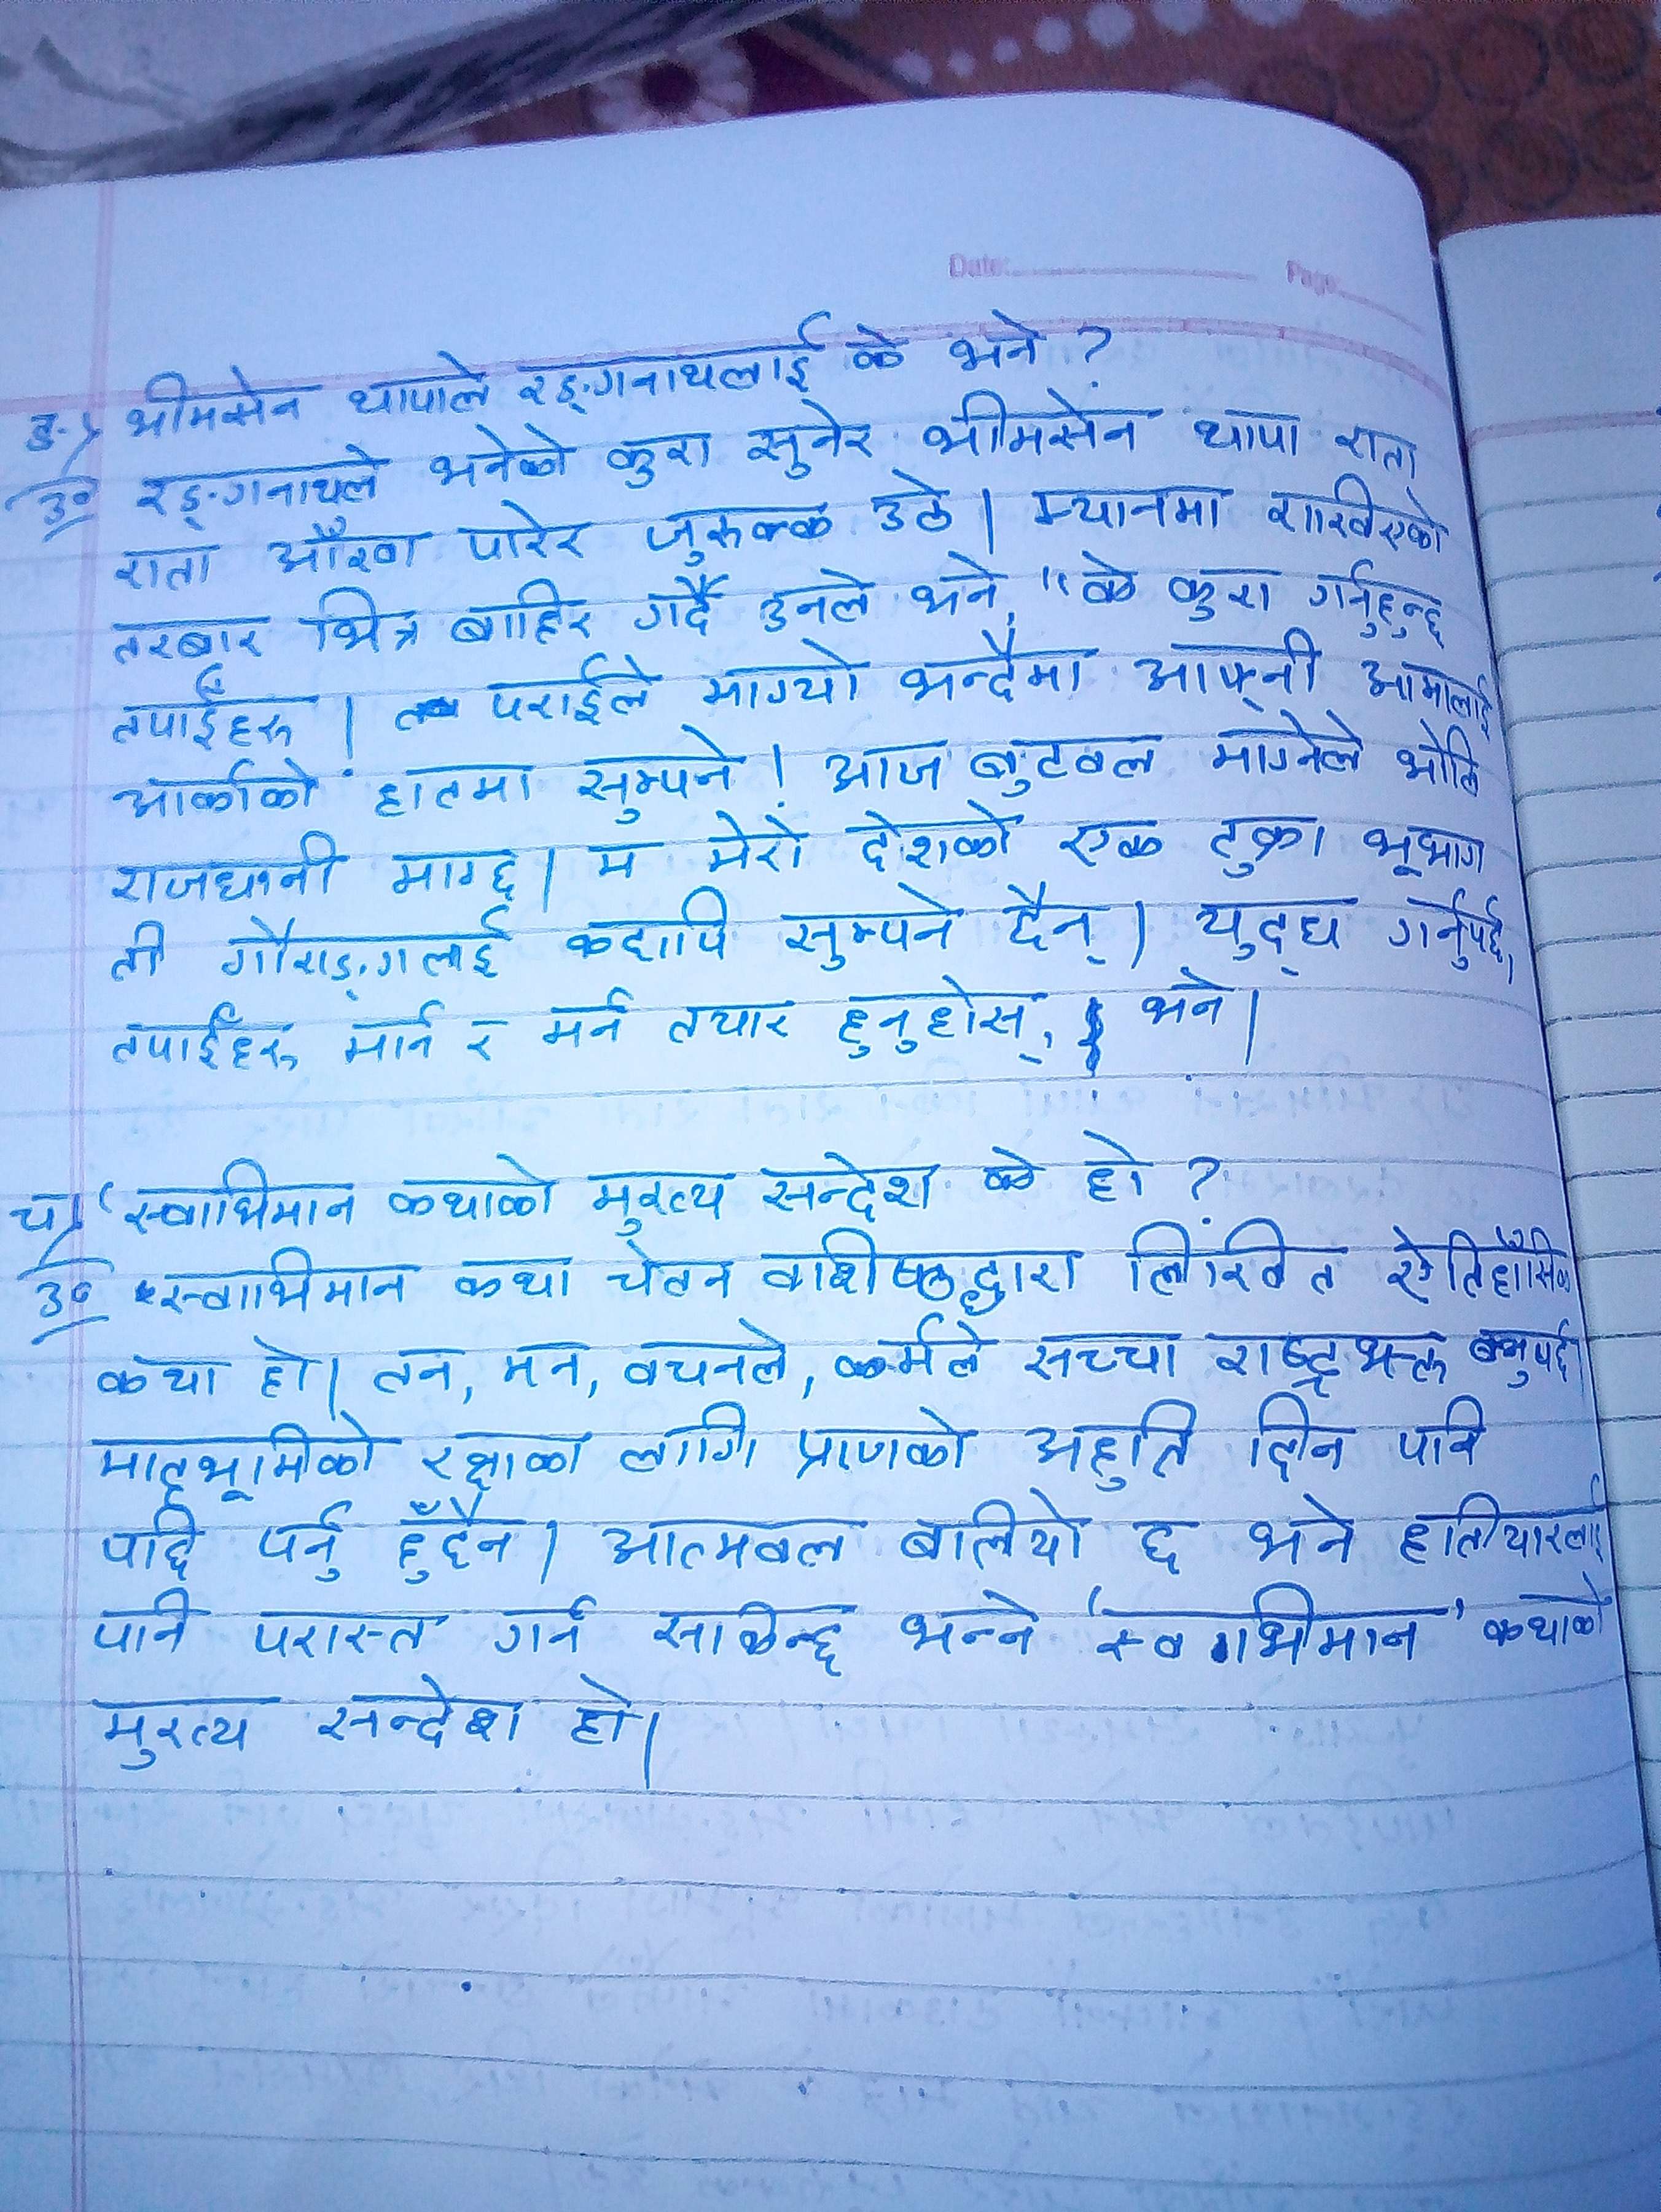 Date: Page
ङ) भीमसेन थापाले रङ्गनाथलाई के भने ?
उ० रङ्गनाथले भनेको कुरा सुनेर भीमसेन थापा राता
राता आँखा पारेर जुरुक्क उठे । म्यानमा राखिएको
तरबार भित्र बाहिर गर्दै उनले भने, "के कुरा गर्नुहुन्छ
तपाईंहरू । पराईले माग्यो भन्दैमा आफ्नी आमालाई
अर्काको हातमा सुम्पने ! आज बुटवल माग्नेले भोलि
राजधानी माग्छ । म मेरो देशको एक टुक्रा भूभाग
ती गौराङ्गलाई कदापि सुम्पने दैन् । युद्ध गर्नुपर्छ,
तपाईंहरू मार्न र मर्न तयार हुनुहोस्, भने ।
च) 'स्वाभिमान कथाको मुख्य सन्देश के हो ?
उ० स्वाभिमान कथा चेतन वाशिष्ठद्वारा लिखित ऐतिहाँसिक
कथा हो । तन, मन, वचनले, कर्मले सच्चा राष्ट्रभक्त बन्नुपर्छ ।
मातृभूमिको रक्षाका लागि प्राणको अहुति दिन पनि
पछि पर्नु हुँदैन । आत्मबल बलियो छ भने हतियारलाई
पनि परास्त गर्न सकिन्छ भन्ने 'स्वाभिमान' कथाको
मुख्य सन्देश हो ।